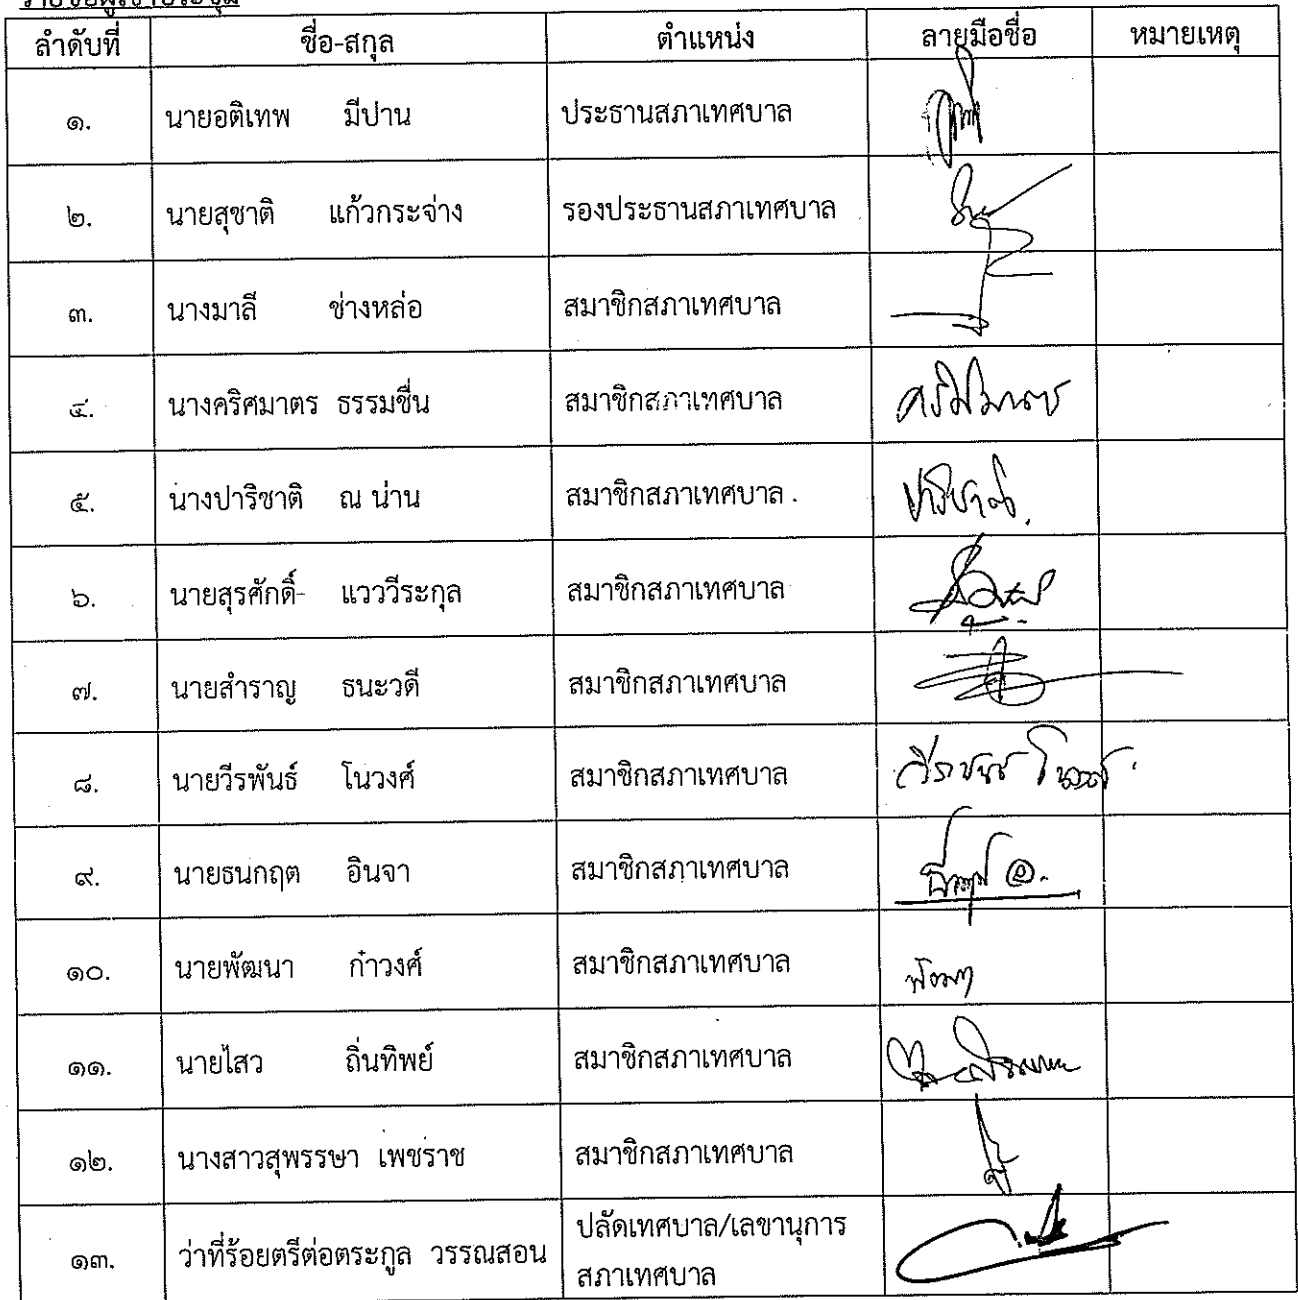 รายชื่อผู้เข้าประชุม
ลำดับที่ ชื่อ-สกุล ตำแหน่ง ลายมือชื่อ หมายเหตุ
๑. นายอติเทพ มีปาน ประธานสภาเทศบาล
๒. นายสุชาติ แก้วกระจ่าง รองประธานสภาเทศบาล
๓. นางมาลี ช่างหล่อ สมาชิกสภาเทศบาล
๔. นางคริศมาตร ธรรมชื่น สมาชิกสภาเทศบาล
๕. นางปาริชาติ ณ น่าน สมาชิกสภาเทศบาล
๖. นายสุรศักดิ์ แวววีระกุล สมาชิกสภาเทศบาล
๗. นายสำราญ ธนะวดี สมาชิกสภาเทศบาล
๘. นายวีรพันธ์ โนวงศ์ สมาชิกสภาเทศบาล วีรพันธ์ โนวงศ์
๙. นายธนกฤต อินจา สมาชิกสภาเทศบาล
๑๐. นายพัฒนา ก๋าวงศ์ สมาชิกสภาเทศบาล พัฒนา
๑๑. นายไสว ถิ่นทิพย์ สมาชิกสภาเทศบาล
๑๒. นางสาวสุพรรษา เพชราช สมาชิกสภาเทศบาล
๑๓. ว่าที่ร้อยตรีต่อตระกูล วรรณสอน ปลัดเทศบาล/เลขานุการ
สภาเทศบาล